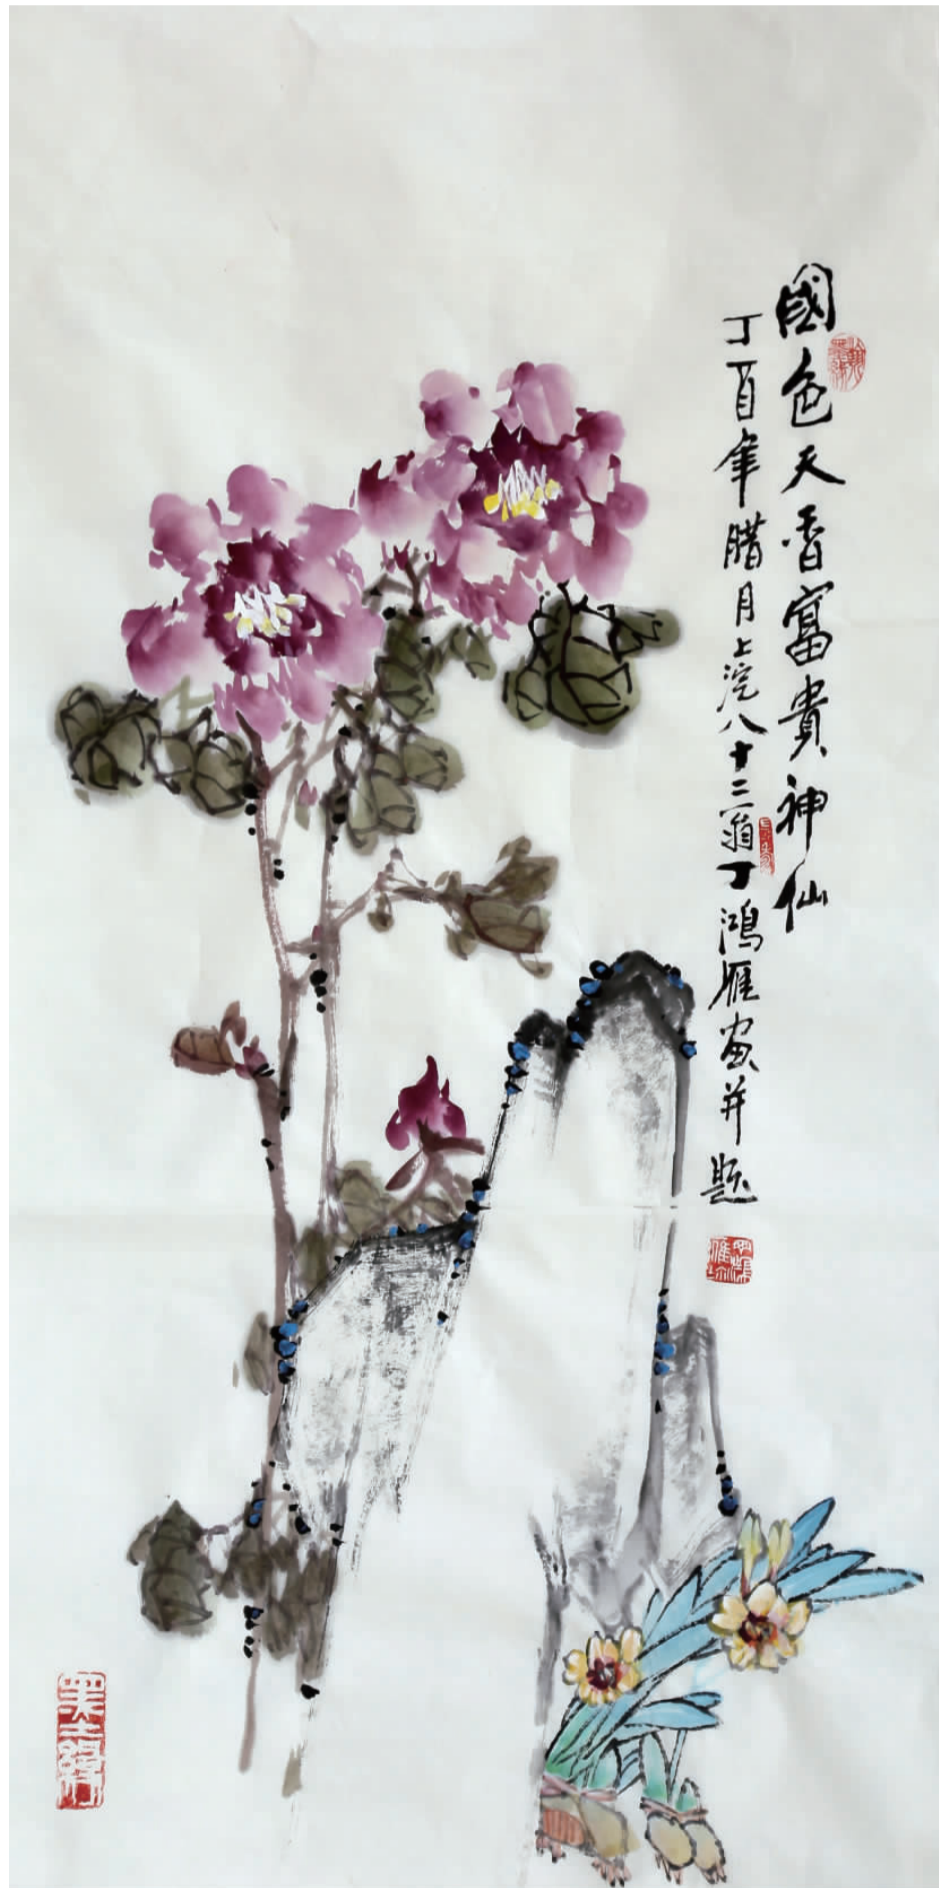 國色天香富貴神仙
丁酉年腊月上浣八十二翁丁鴻雁画并题